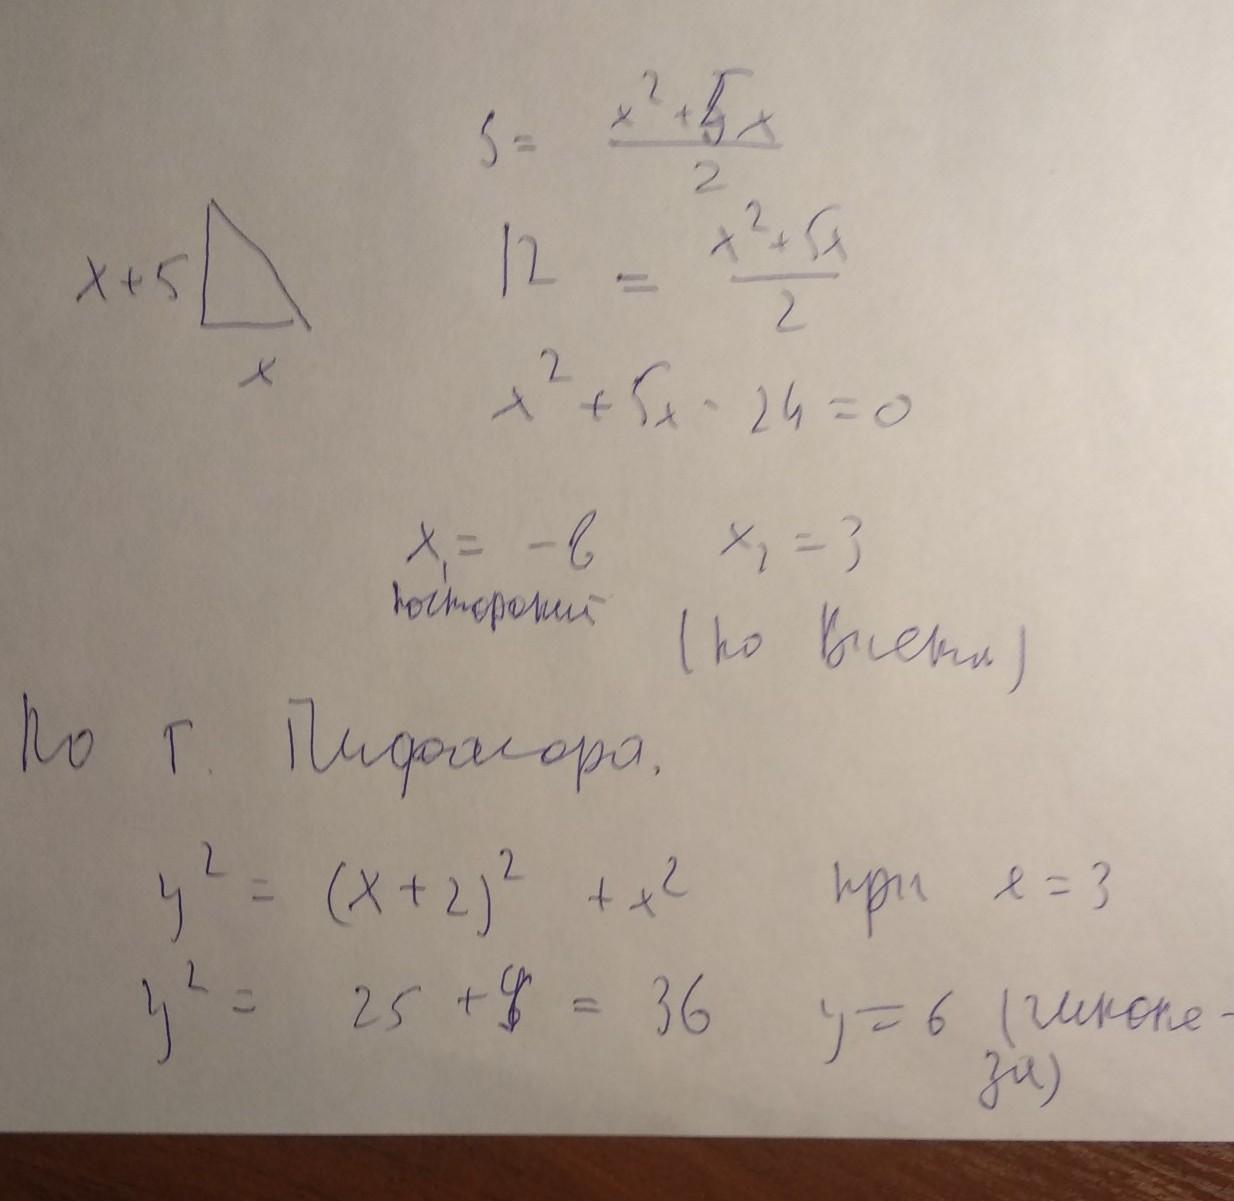 S = (x² + 5x)/2
x+5
x
12 = (x² + 5x)/2
x² + 5x - 24 = 0
x₁ = -8 x₂ = 3
посторонний
(по Виета)
По т. Пифагора.
y² = (x+2)² + x² при x = 3
y² = 25 + 9 = 36 y = 6 (гипоте-
за)